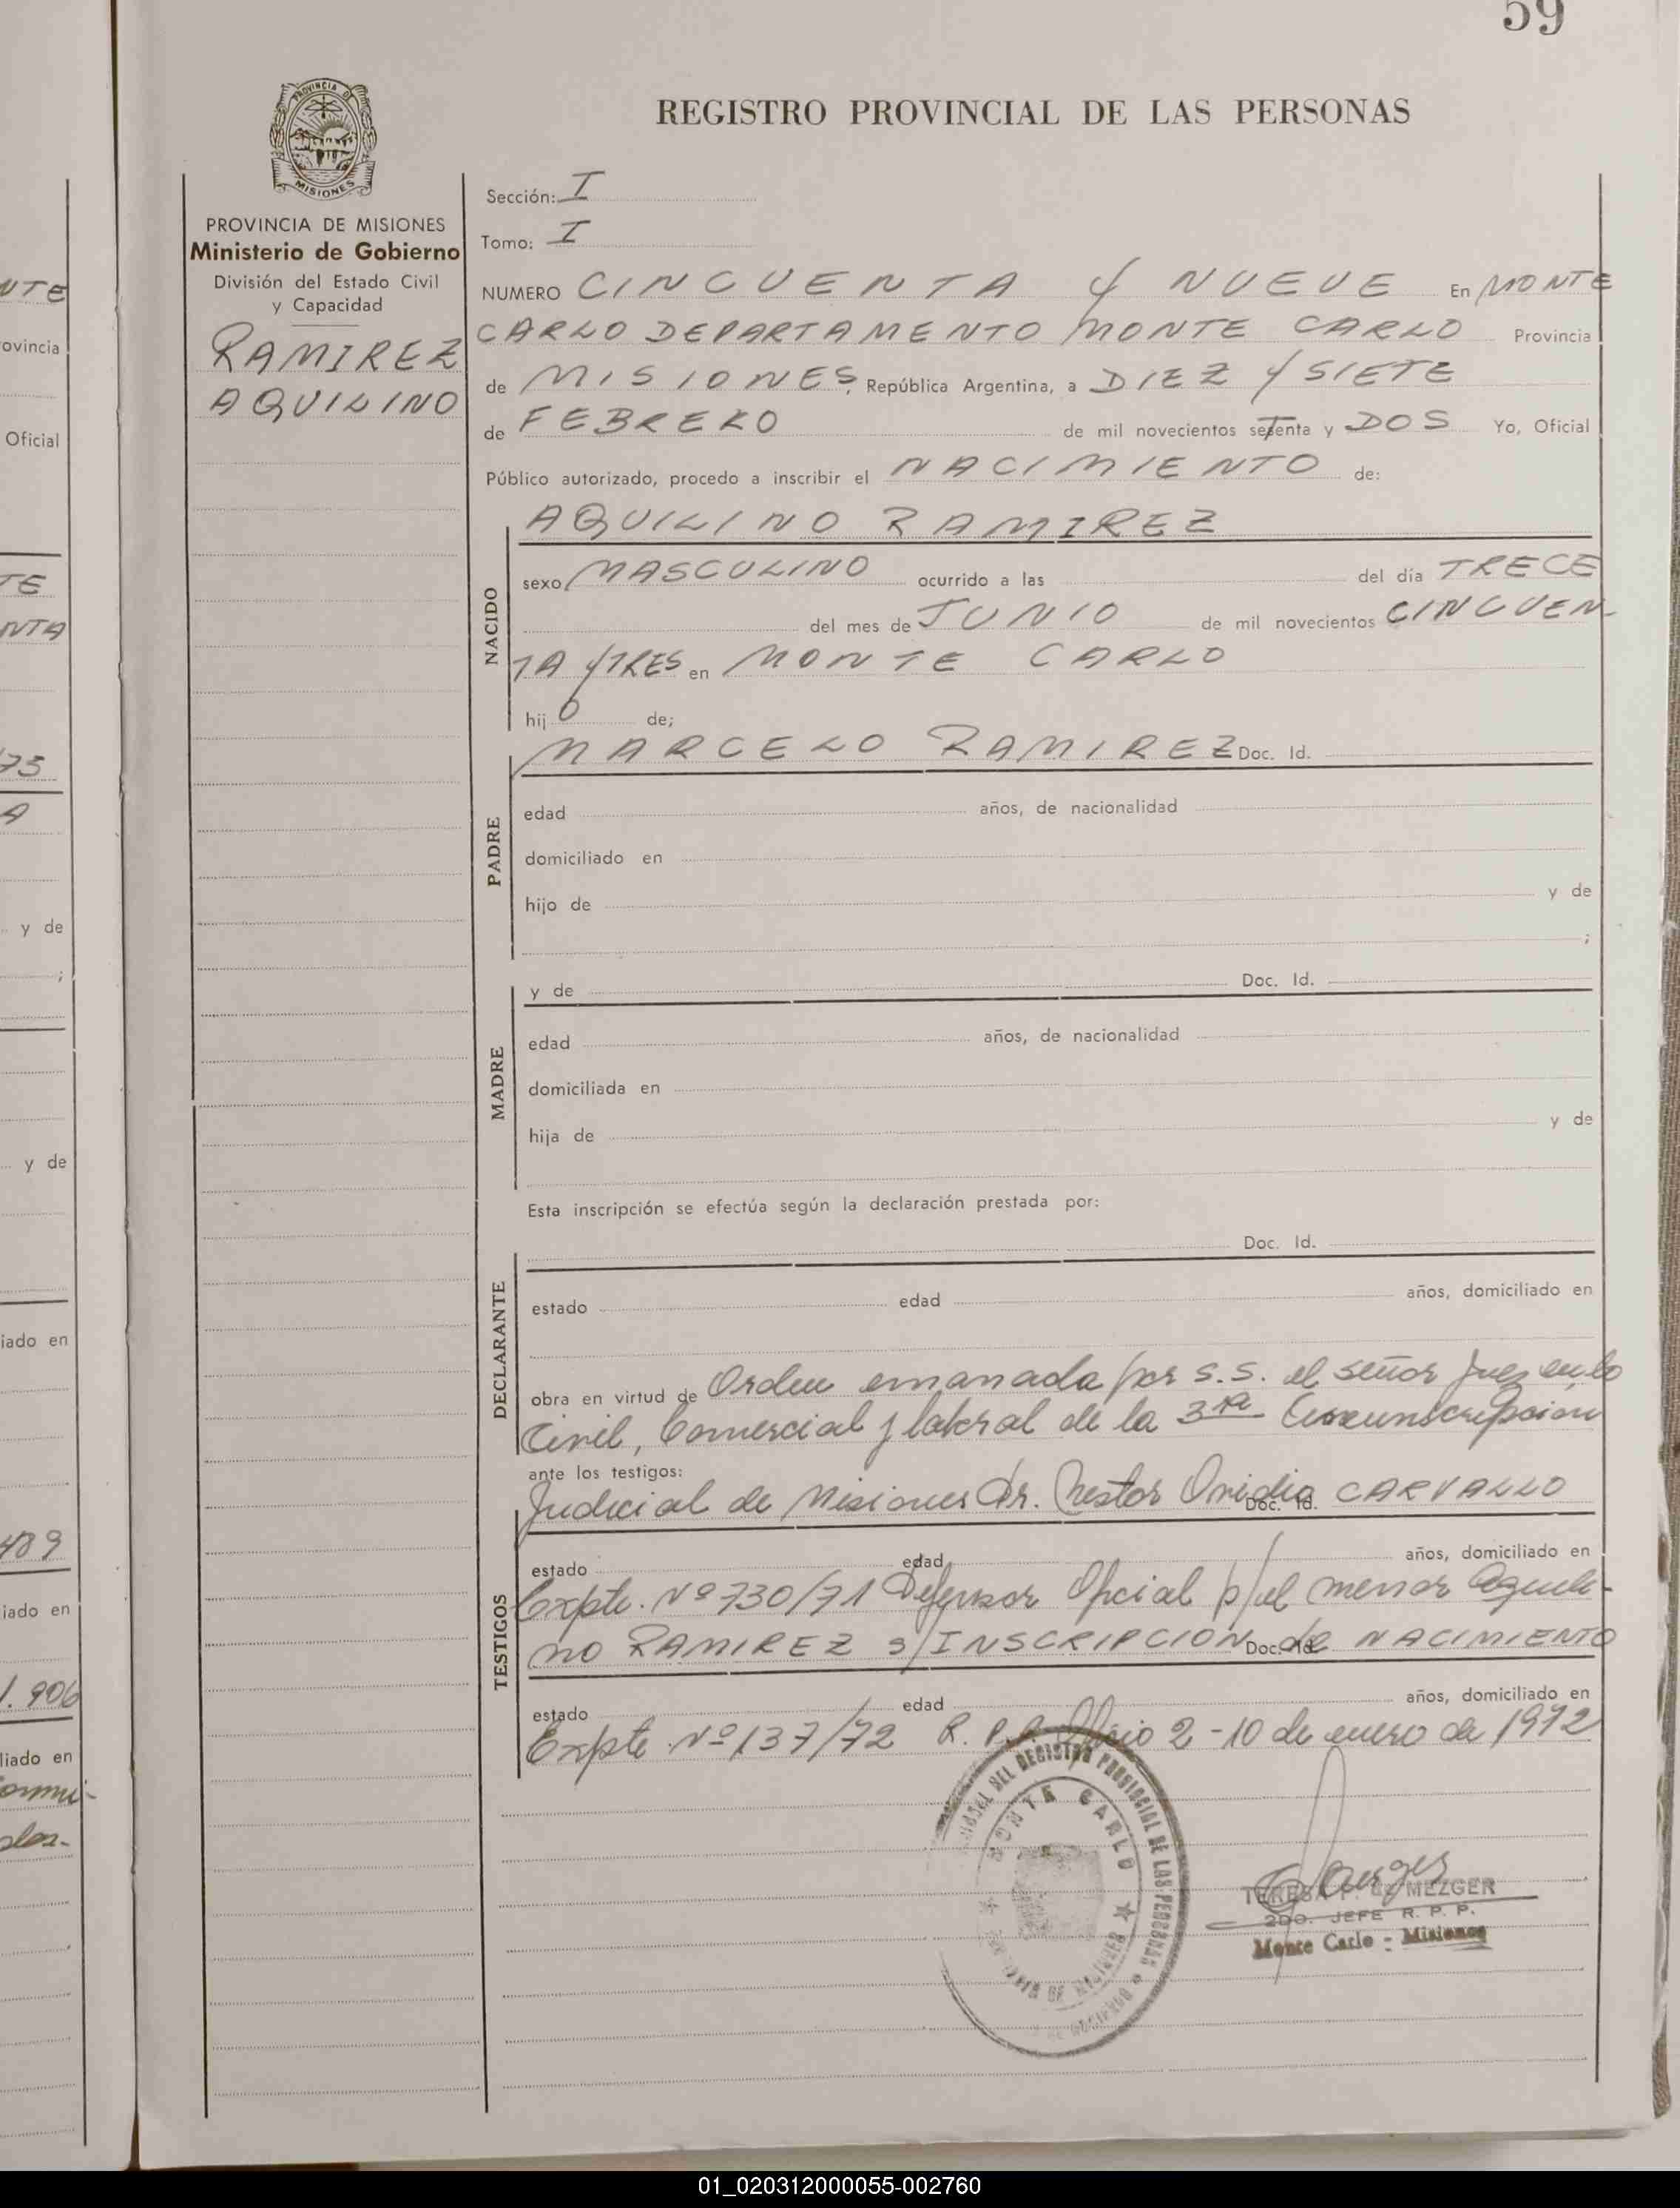 59
REGISTRO PROVINCIAL DE LAS PERSONAS
PROVINCIA DE MISIONES
PROVINCIA DE MISIONES
Ministerio de Gobierno
División del Estado Civil
y Capacidad
RAMIREZ
AQUILINO
Sección: I
Tomo: I
NUMERO CINCUENTA Y NUEVE En MONTE
CARLO DEPARTAMENTO MONTE CARLO Provincia
de MISIONES, República Argentina, a DIEZ Y SIETE
de FEBRERO de mil novecientos setenta y DOS Yo, Oficial
Público autorizado, procedo a inscribir el NACIMIENTO de:
AQUILINO RAMIREZ
NACIDO
sexo MASCULINO ocurrido a las del día TRECE
del mes de JUNIO de mil novecientos CINCUEN-
TA Y TRES en MONTE CARLO
hij O de;
MARCELO RAMIREZ Doc. Id.
PADRE
edad años, de nacionalidad
domiciliado en
hijo de y de
;
MADRE
y de Doc. Id.
edad años, de nacionalidad
domiciliada en
hija de y de
Esta inscripción se efectúa según la declaración prestada por:
Doc. Id.
DECLARANTE
estado edad años, domiciliado en
obra en virtud de Orden emanada por S.S. el señor Juez en lo
Civil, Comercial y laboral de la 3ra Circunscripcion
ante los testigos:
Judicial de Misiones Dr. Nestor Ovidio CARVALLO
Doc. Id.
TESTIGOS
estado edad años, domiciliado en
Expte. Nº 730/71 Defensor Oficial p/el menor Aquili-
no RAMIREZ s/INSCRIPCION de NACIMIENTO
Doc. Id.
estado edad años, domiciliado en
Expte Nº 137/72 R. P. P. Oficio 2 - 10 de enero de 1972
DEL REGISTRO PROVINCIAL DE LAS PERSONAS
MONTE CARLO
TERESA DE MEZGER
2DO. JEFE R. P. P.
Monte Carlo - Misiones
NTE
ovincia
Oficial
TE
NTA
75
A
y de
;
y de
iado en
489
iado en
1.906
liado en
01_020312000055-002760